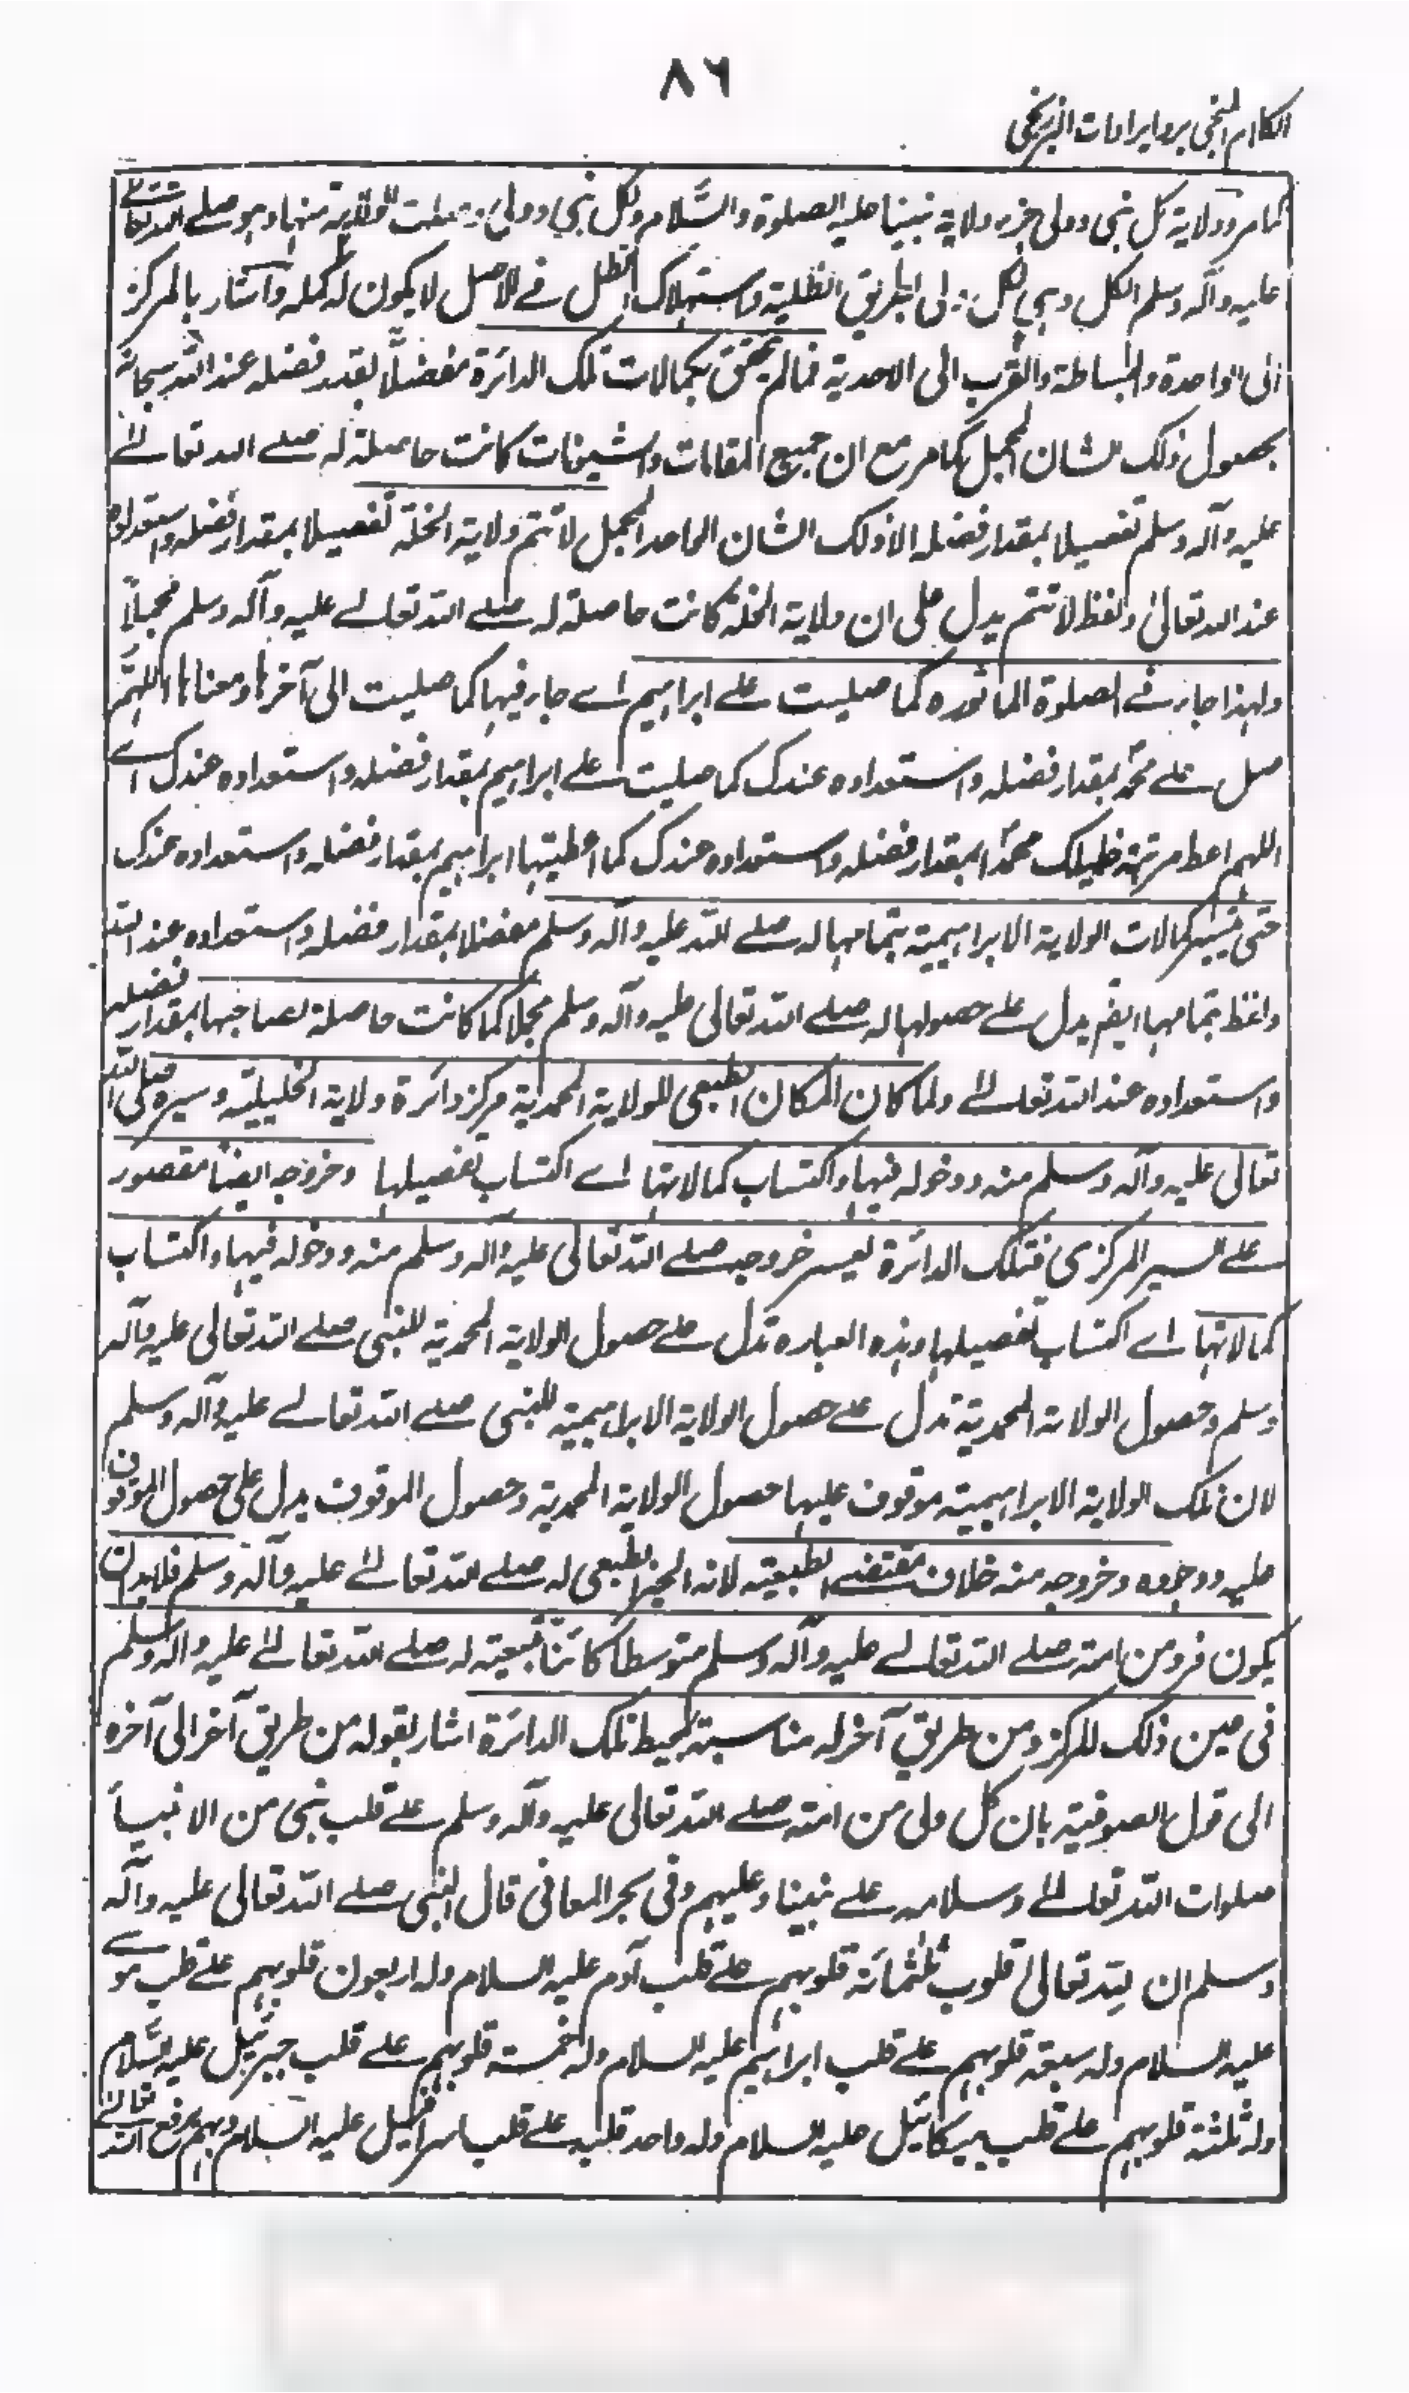 ٨٦
الكلام المنجي برد ايرادات البرزنجي
كما مر وولاية كل نبي وولي جزء ولاية نبينا عليه الصلوة والسَّلام ولكل نبي وولي منها وهو صلے الله تعالے
عليه وآله وسلم الكل وهي لكل ولي بطريق الظلية واستهلاك الظل فے الاصل لا يكون له كمله وآشار بالمركز
الى الواحدة والبساطة والقرب الى الاحدية فمالم يتحقق بكمالات تلك الدائرة مفضلًا بقدر فضله عند الله سبحانه
بحصول ذلك الشان المجمل كما مر مع ان جميع المقامات والشيونات كانت حاصلة له صلے الله تعالے
عليه وآله وسلم تفصيلا بمقدار فضله الا ذلك الشان الواحد المجمل لا تتم ولاية الخلة تفصيلا بمقدار فضله واستعداده
عند الله تعالىٰ ولفظ لا تتم يدل على ان ولاية الخلة كانت حاصلة له صلے الله تعالے عليه وآله وسلم مجملاً
ولهذا جاء فے الصلوة الماثوره كما صليت علے ابراهيم اے جاء فيها كما صليت الى آخرها ومعناها اللهمَّ
صل علے محمد بمقدار فضله واستعداده عندك كما صليت علے ابراهيم بمقدار فضله واستعداده عندك اے
اللهم اعط مرتبة خليلك محمدًا بمقدار فضله واستعداده عندك كما اعطيتها ابراهيم بمقدار فضله واستعداده عندك
حتى تيسر كمالات الولاية الابراهيمية بتمامها له صلے الله عليه وآله وسلم مفضلا بمقدار فضله واستعداده عند الله
ولفظ بتمامها ايضا يدل علے حصولها له صلے الله تعالى عليه وآله وسلم مجملا كما كانت حاصلة لصاحبها بمقدار فضله
واستعداده عند الله تعالے ولما كان المكان الطبعي للولاية المحمدية مركز دائرة ولاية الخليلية وسيره صلى الله
تعالى عليه وآله وسلم منه ودخوله فيها واكتساب كمالاتها اے اكتساب تفصيلها وخروجه ايضًا مقصور
علے السير المركزي فتلك الدائرة تعيسر خروجه صلے الله تعالى عليه وآله وسلم منه ودخوله فيها واكتساب
كمالاتها اے اكتساب تفصيلها وهذه العباره تدل علے حصول الولاية المحمدية للنبي صلے الله تعالى عليه وآله
وسلم وحصول الولاية المحمدية تدل علے حصول الولاية الابراهيمية للنبي صلے الله تعالے عليه وآله وسلم
لان تلك الولاية الابراهيمية موقوف عليها حصول الولاية المحمدية وحصول الموقوف يدل على حصول الموقوف
عليه ووجوده وخروجه منه خلاف مقتضے الطبيعته لانه الحيز الطبعي له صلے الله تعالے عليه وآله وسلم فلابد ان
يكون فرد من امته صلے الله تعالے عليه وآله وسلم متوسطا كائنًا بتبعيته له صلے الله تعالے عليه وآله وسلم
في عين ذلك المركز ومن طريق آخر له مناسبة بمحيط تلك الدائرة اشار بقوله من طريق آخر الى آخره
الى قول الصوفية بان كل ولى من امته صلے الله تعالى عليه وآله وسلم علے قلب نبي من الانبيآ
صلوات الله تعالے وسلامه علے نبينا وعليهم وفي بحر المعاني قال النبي صلے الله تعالى عليه وآله
وسلم ان لله تعالىٰ قلوب ثلثمائة قلوبهم علے قلب آدم عليه السلام وله اربعون قلوبهم علے قلب موسے
عليه السلام وله سبعة قلوبهم علے قلب ابراهيم عليه السلام وله خمسة قلوبهم علے قلب جبرئيل عليه السَّلام
وله ثلثة قلوبهم علے قلب ميكائيل عليه السلام وله واحد قلبه علے قلب اسرافيل عليه السلام وبهم يرفع الله تعالے